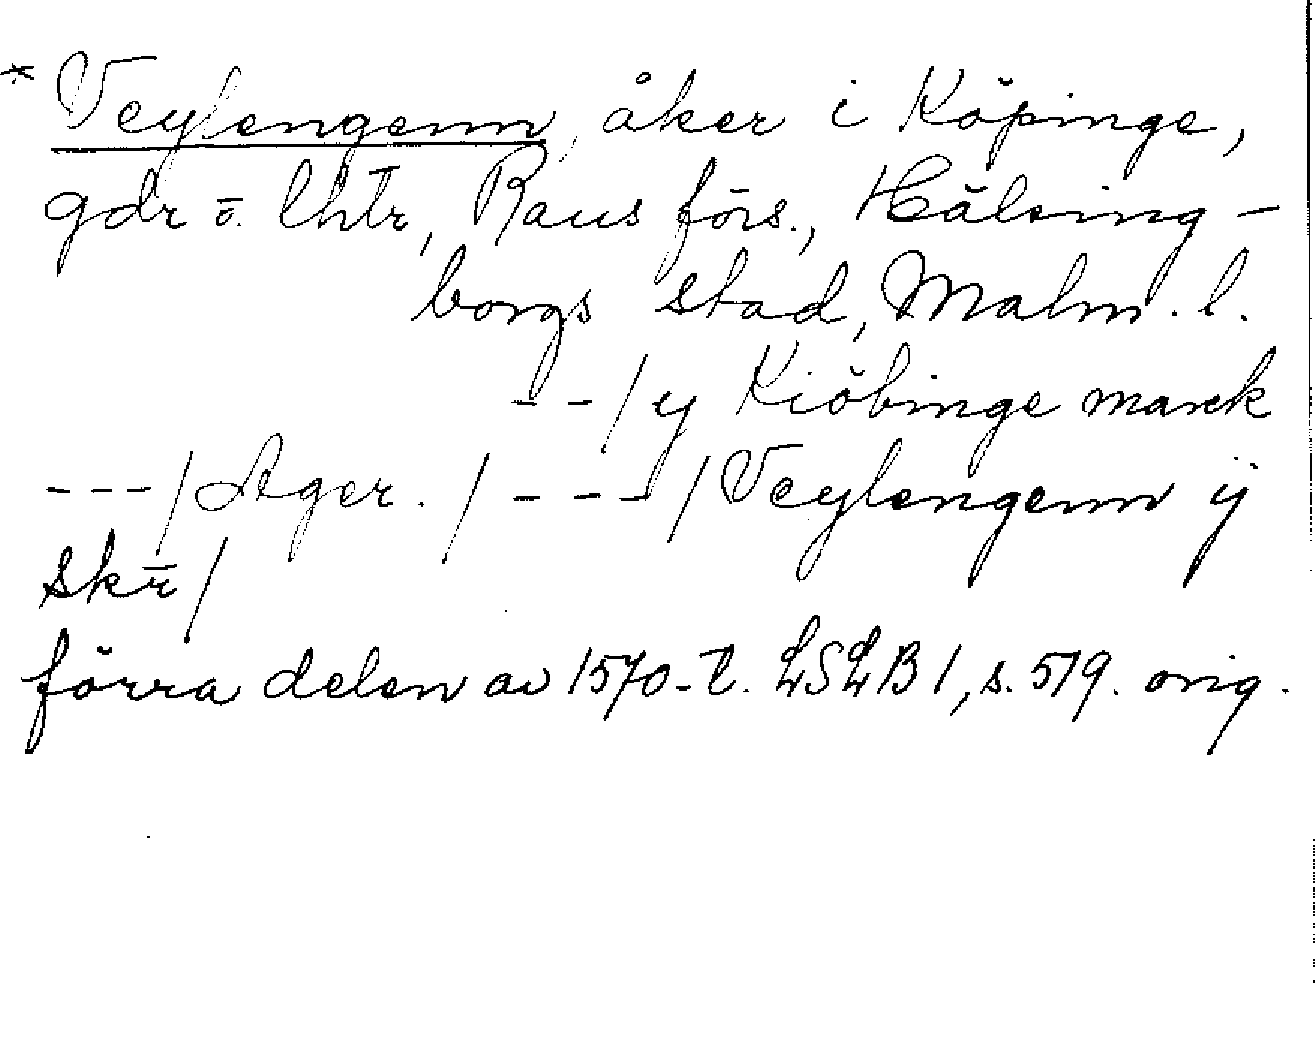 * Veylengenn, åker i Köpinge,
gdr o. lhtr, Raus förs., Hälsing-
borgs stad, Malm. l.
- - / y Kiöbinge marck
- - - / Ager. / - - - / Veylengenn ÿ
skr /
förra delen av 1570-t. LSLB 1, s. 519. orig.